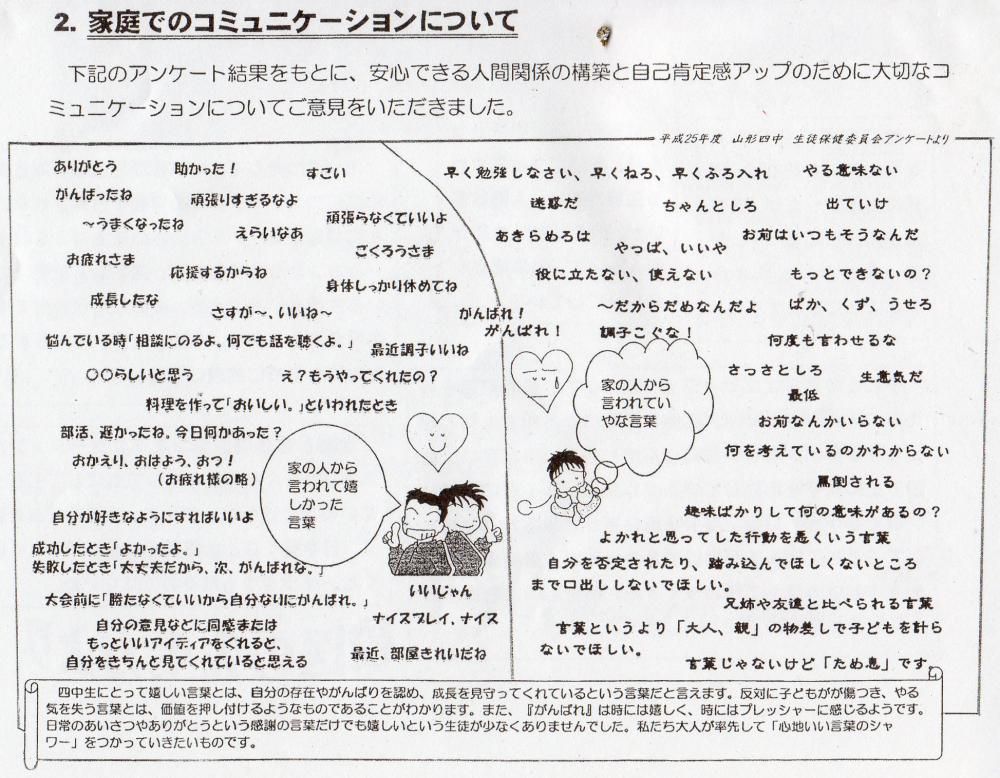 2. 家庭でのコミュニケーションについて
下記のアンケート結果をもとに、安心できる人間関係の構築と自己肯定感アップのために大切なコ
ミュニケーションについてご意見をいただきました。
平成25年度 山形四中 生徒保健委員会アンケートより
ありがとう
助かった！
すごい
がんばったね
頑張りすぎるなよ
頑張らなくていいよ
～うまくなったね
えらいなあ
ごくろうさま
お疲れさま
応援するからね
身体しっかり休めてね
成長したな
さすが～、いいね～
がんばれ！
悩んでいる時「相談にのるよ。何でも話を聴くよ。」
最近調子いいね
〇〇らしいと思う
え？もうやってくれたの？
料理を作って「おいしい。」といわれたとき
部活、遅かったね。今日何かあった？
おかえり、おはよう、おつ！
（お疲れ様の略）
家の人から
言われて嬉
しかった
言葉
自分が好きなようにすればいいよ
成功したとき「よかったよ。」
失敗したとき「大丈夫だから、次、がんばれな。」
大会前に「勝たなくていいから自分なりにがんばれ。」
いいじゃん
ナイスプレイ、ナイス
自分の意見などに同感または
もっといいアイディアをくれると、
自分をきちんと見てくれていると思える
最近、部屋きれいだね
早く勉強しなさい、早くねろ、早くふろ入れ
やる意味ない
迷惑だ
ちゃんとしろ
出ていけ
あきらめろは
やっぱ、いいや
お前はいつもそうなんだ
役に立たない、使えない
もっとできないの？
～だからだめなんだよ
ばか、くず、うせろ
がんばれ！
調子こぐな！
何度も言わせるな
家の人から
言われてい
やな言葉
さっさとしろ
生意気だ
最低
お前なんかいらない
何を考えているのかわからない
罵倒される
趣味ばかりして何の意味があるの？
よかれと思ってした行動を悪くいう言葉
自分を否定されたり、踏み込んでほしくないところ
まで口出ししないでほしい。
兄姉や友達と比べられる言葉
言葉というより「大人、親」の物差しで子どもを計ら
ないでほしい。
言葉じゃないけど「ため息」です。
四中生にとって嬉しい言葉とは、自分の存在やがんばりを認め、成長を見守ってくれているという言葉だと言えます。反対に子どもがが傷つき、やる
気を失う言葉とは、価値を押し付けるようなものであることがわかります。また、『がんばれ』は時には嬉しく、時にはプレッシャーに感じるようです。
日常のあいさつやありがとうという感謝の言葉だけでも嬉しいという生徒が少なくありませんでした。私たち大人が率先して「心地いい言葉のシャ
ワー」をつかっていきたいものです。